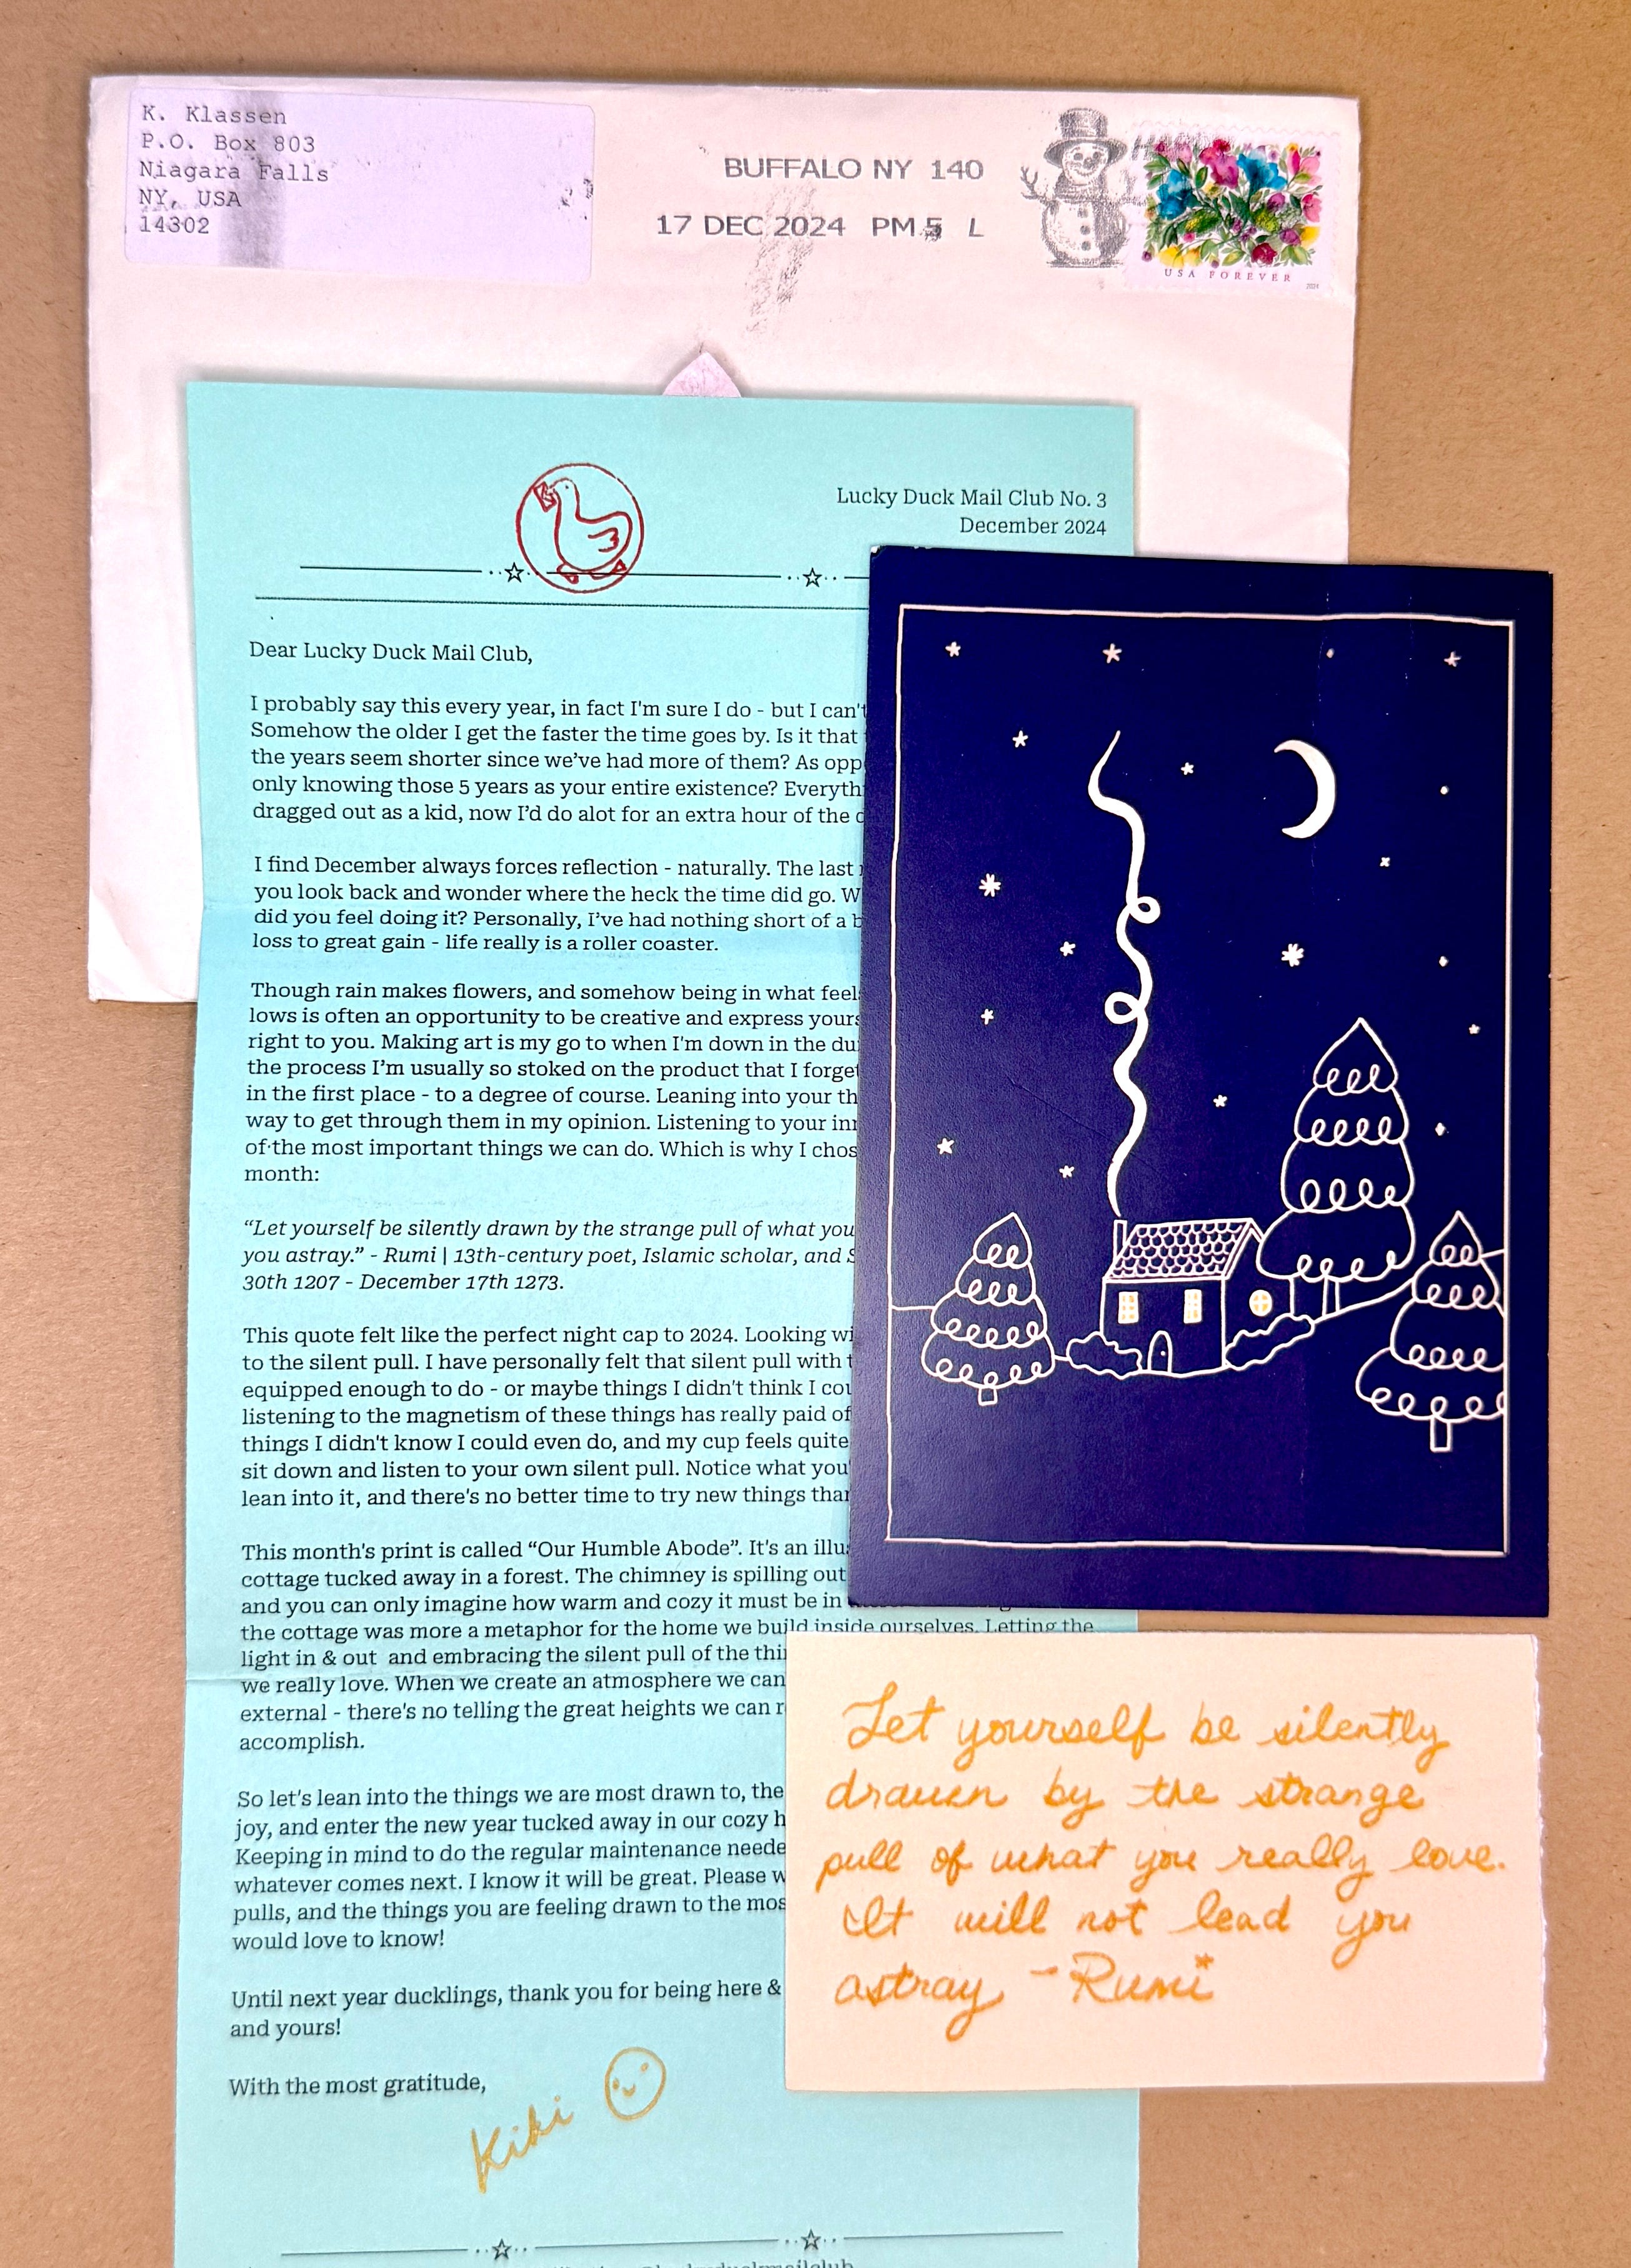 K. Klassen
P.O. Box 803
Niagara Falls
NY, USA
14302
BUFFALO NY 140
17 DEC 2024 PM 5 L
USA FOREVER
2024
Lucky Duck Mail Club No. 3
December 2024
Dear Lucky Duck Mail Club,
I probably say this every year, in fact I'm sure I do - but I can't
Somehow the older I get the faster the time goes by. Is it that
the years seem shorter since we've had more of them? As opp
only knowing those 5 years as your entire existence? Everyth
dragged out as a kid, now I'd do alot for an extra hour of the
I find December always forces reflection - naturally. The last
you look back and wonder where the heck the time did go. W
did you feel doing it? Personally, I've had nothing short of a b
loss to great gain - life really is a roller coaster.
Though rain makes flowers, and somehow being in what feel
lows is often an opportunity to be creative and express yours
right to you. Making art is my go to when I'm down in the du
the process I'm usually so stoked on the product that I forget
in the first place - to a degree of course. Leaning into your th
way to get through them in my opinion. Listening to your inn
of the most important things we can do. Which is why I chos
month:
“Let yourself be silently drawn by the strange pull of what you
you astray.” - Rumi | 13th-century poet, Islamic scholar, and S
30th 1207 - December 17th 1273.
This quote felt like the perfect night cap to 2024. Looking wi
to the silent pull. I have personally felt that silent pull with t
equipped enough to do - or maybe things I didn't think I cou
listening to the magnetism of these things has really paid of
things I didn't know I could even do, and my cup feels quite
sit down and listen to your own silent pull. Notice what you'
lean into it, and there's no better time to try new things than
This month's print is called “Our Humble Abode”. It's an illus
cottage tucked away in a forest. The chimney is spilling out
and you can only imagine how warm and cozy it must be in
the cottage was more a metaphor for the home we build inside ourselves. Letting the
light in & out and embracing the silent pull of the thi
we really love. When we create an atmosphere we can
external - there's no telling the great heights we can r
accomplish.
So let's lean into the things we are most drawn to, the
joy, and enter the new year tucked away in our cozy h
Keeping in mind to do the regular maintenance neede
whatever comes next. I know it will be great. Please w
pulls, and the things you are feeling drawn to the mos
would love to know!
Until next year ducklings, thank you for being here &
and yours!
With the most gratitude,
Kiki
Let yourself be silently
drawn by the strange
pull of what you really love.
It will not lead you
astray - Rumi